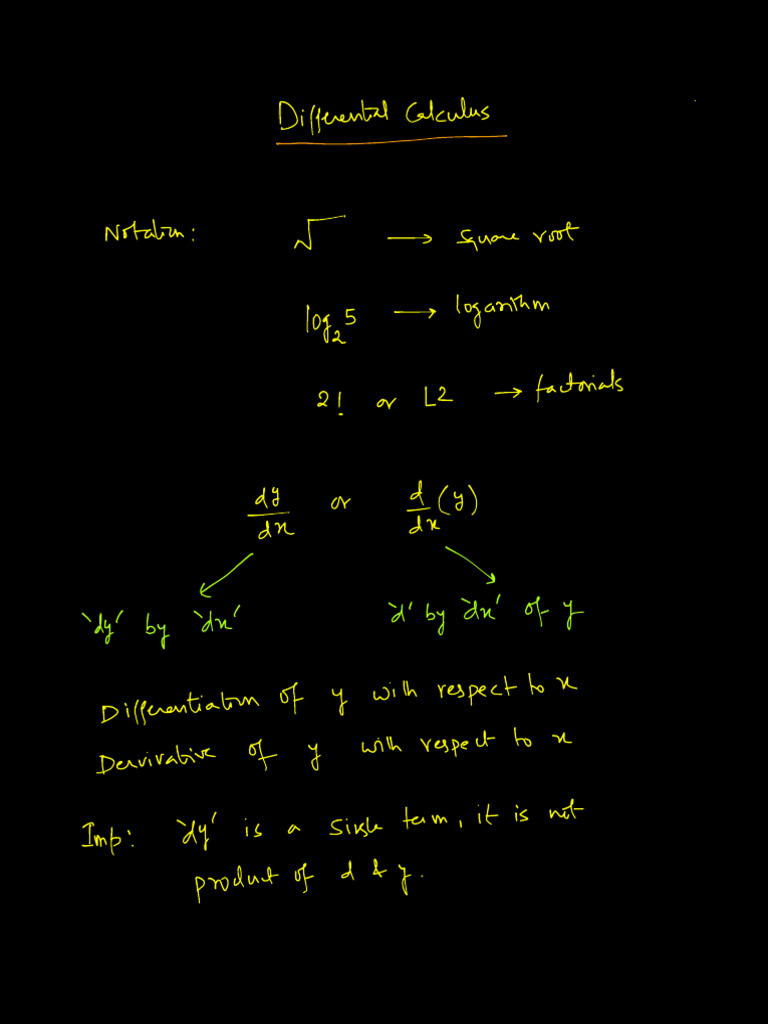 Differential Calculus
Notation: √ → square root
log₂5 → logarithm
2! or L2 → factorials
dy/dx or d/dx (y)
`dy' by `dx' `d' by `dx' of y
Differentiation of y with respect to x
Dervirative of y with respect to x
Imp: `dy' is a single term, it is not
product of d & y.